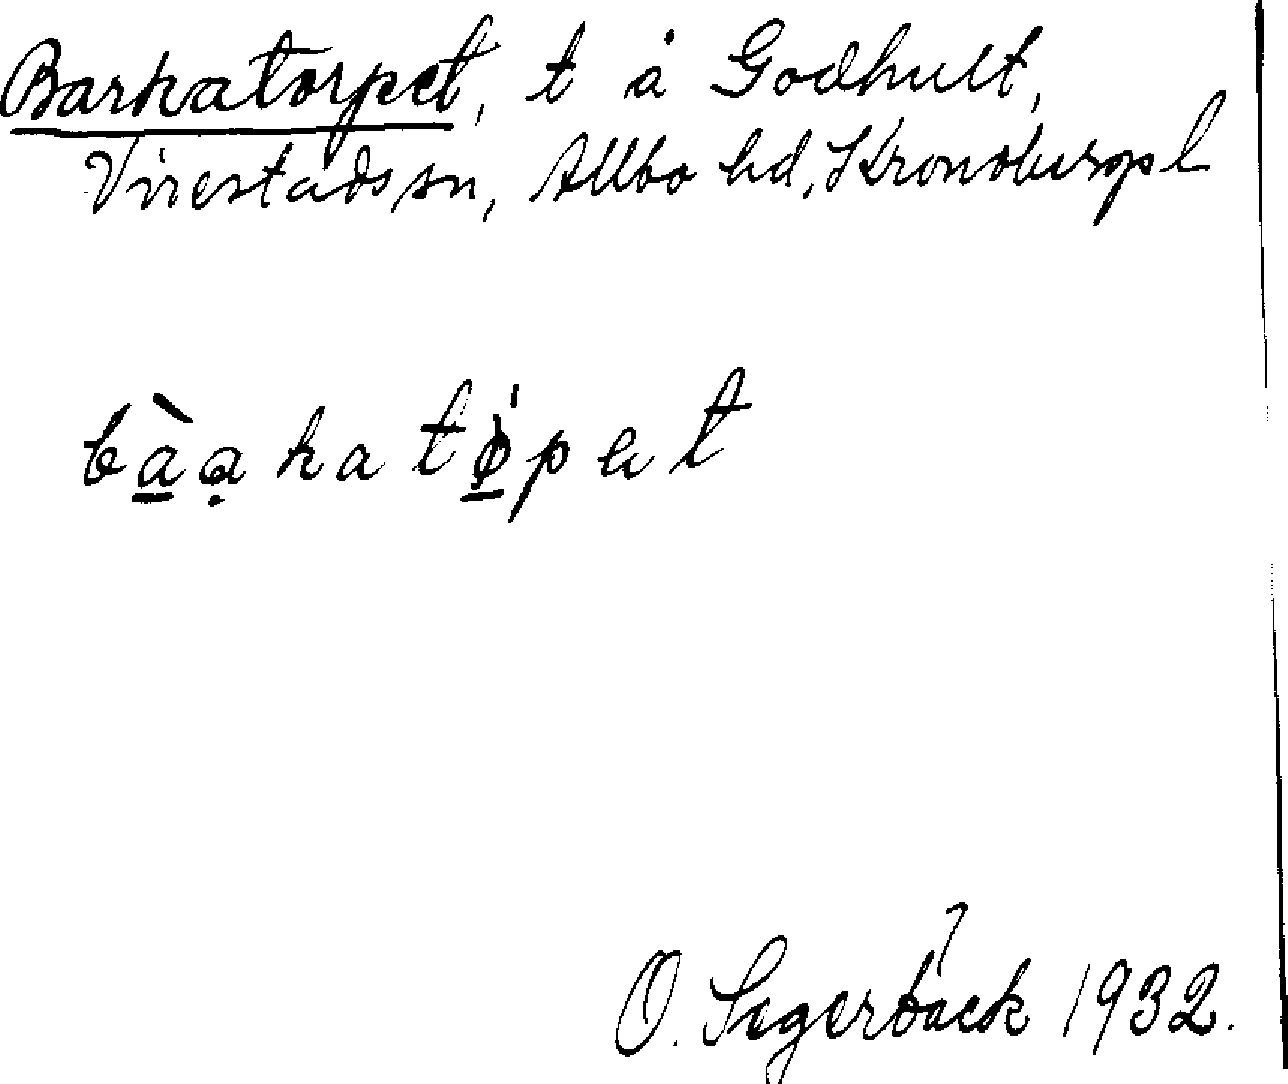 Barkatorpet, t å Godhult,
Virestads sn, Allbo hd, Kronobergs l
bàạkatǿpət
O. Segerbäck 1932.